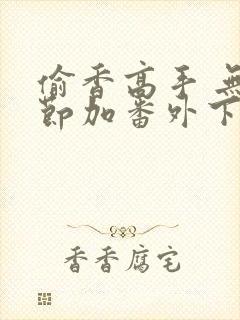 偷香高手 無
節加番外下
香香腐宅